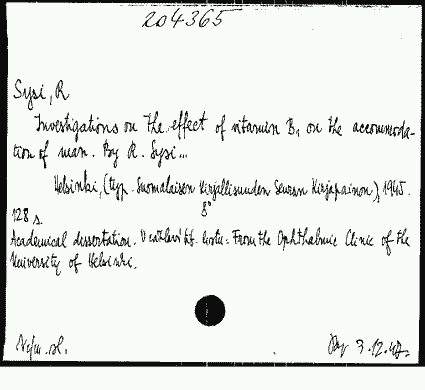 204365
Sysi, R
Investigations on the effect of vitamin B₁ on the accommoda-
tion of man. By R. Sysi...
Helsinki, (typ. Suomalaisen Kirjallisuuden Seuran Kirjapainon), 1945.
8°
128 s.
Academical dissertation. From the Ophthalmic Clinic of the
University of Helsinki.
3.12.47.